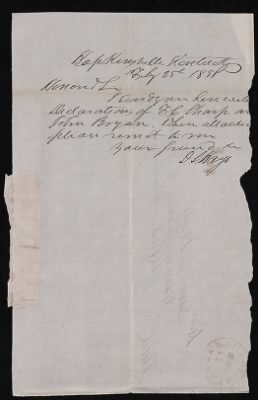 Hopkinsville Kentucky
July 25th 185
Honord Sir
I send you herewith
Declarations of F C Sharp an
John Bryan, When allowed
please remit to me
Your friend